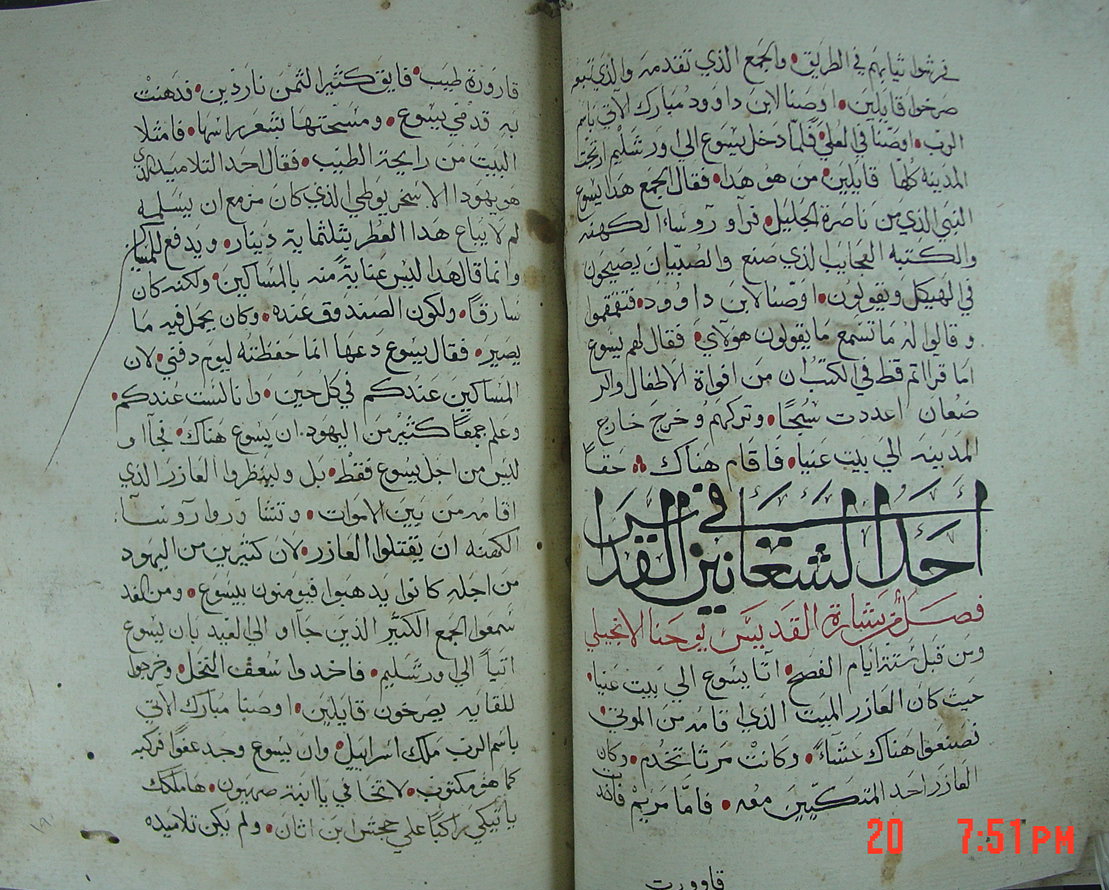 فرشوا ثيابهم في الطريق • والجمع الذي تقدمه والذي تبعه
صرخوا قايلين • اوصنا لابن داوود مبارك الاتي باسم
الرب • اوصنا في العلي • فلما دخل يسوع الي اورشليم ارتجت
المدينه كلها قايلين • من هو هدا • فقال الجمع هدا يسوع
النبي الذي من ناصرة الجليل • فرآو روساء الكهنه
والكتبه العجايب الذي صنع والصبيان يصيحون
في الهيكل ويقولون • اوصنا لابن داوود • فتقمقموا
وقالوا له ما تسمع ما يقولون هولاي • فقال لهم يسوع
اما قراتم قط في الكتب ان من افواه الاطفال والر
ضعان اعددت سبحا • وتركهم وخرج خارج
المدينه الي بيت عنيا • فاقام هناك • حقا
احد الشعانين القداس
فصل من بشارة القديس يوحنا الانجيلي
ومن قبل ستة ايام الفصح • اتا يسوع الي بيت عنيا •
حيث كان العازر الميت الذي اقامه من الموتي •
فصنعوا هناك عشاء • وكانت مرثا تخدم • وكان
العازر احد المتكيين معه • فاما مريم فاخدت
قاوورت
قارورة طيب • فايق كثير الثمن ناردين • فدهنت
به قدمي يسوع • ومسحتها بشعر راسها • فامتلا
البيت من رايحة الطيب • فقال احد التلاميد الدي
هو يهودا الاسخريوطي الذي كان مزمع ان يسلمه
لم لا يباع هدا العطر بثلثماية دينار • ويدفع للمساكين
وانما قال هدا ليس عناية منه بالمساكين • ولكنه كان
سارقا • ولكون الصندوق عنده • وكان يحمل فيه ما
يصير • فقال يسوع دعها انما حفظته ليوم دفني • لان
المساكين عندكم في كل حين • وانا لست عندكم •
وعلم جمعا كثير من اليهود ان يسوع هناك • فجاآو
ليس من اجل يسوع فقط • بل ولينظروا العازر الدي
اقامه من بين الاموات • وتشاوروا روسا
الكهنه ان يقتلوا العازر • لان كثيرين من اليهود
من اجله كانوا يدهبوا فيومنون بيسوع • ومن الغد
سمعوا الجمع الكثير الذين جاآو الي العيد بان يسوع
اتيا الي اورشليم • فاخدوا سعف النخل • وخرجوا
للقايه يصرخون قايلين • اوصنا مبارك الاتي
باسم الرب ملك اسراييل • وان يسوع وجد عفوا فركبه
كما هو مكتوب • لا تخافي يا ابنة صهيون • ها ملكك
ياتيكي راكبا علي جحش ابن اتان • ولم يكن تلاميده
20 7:51 PM